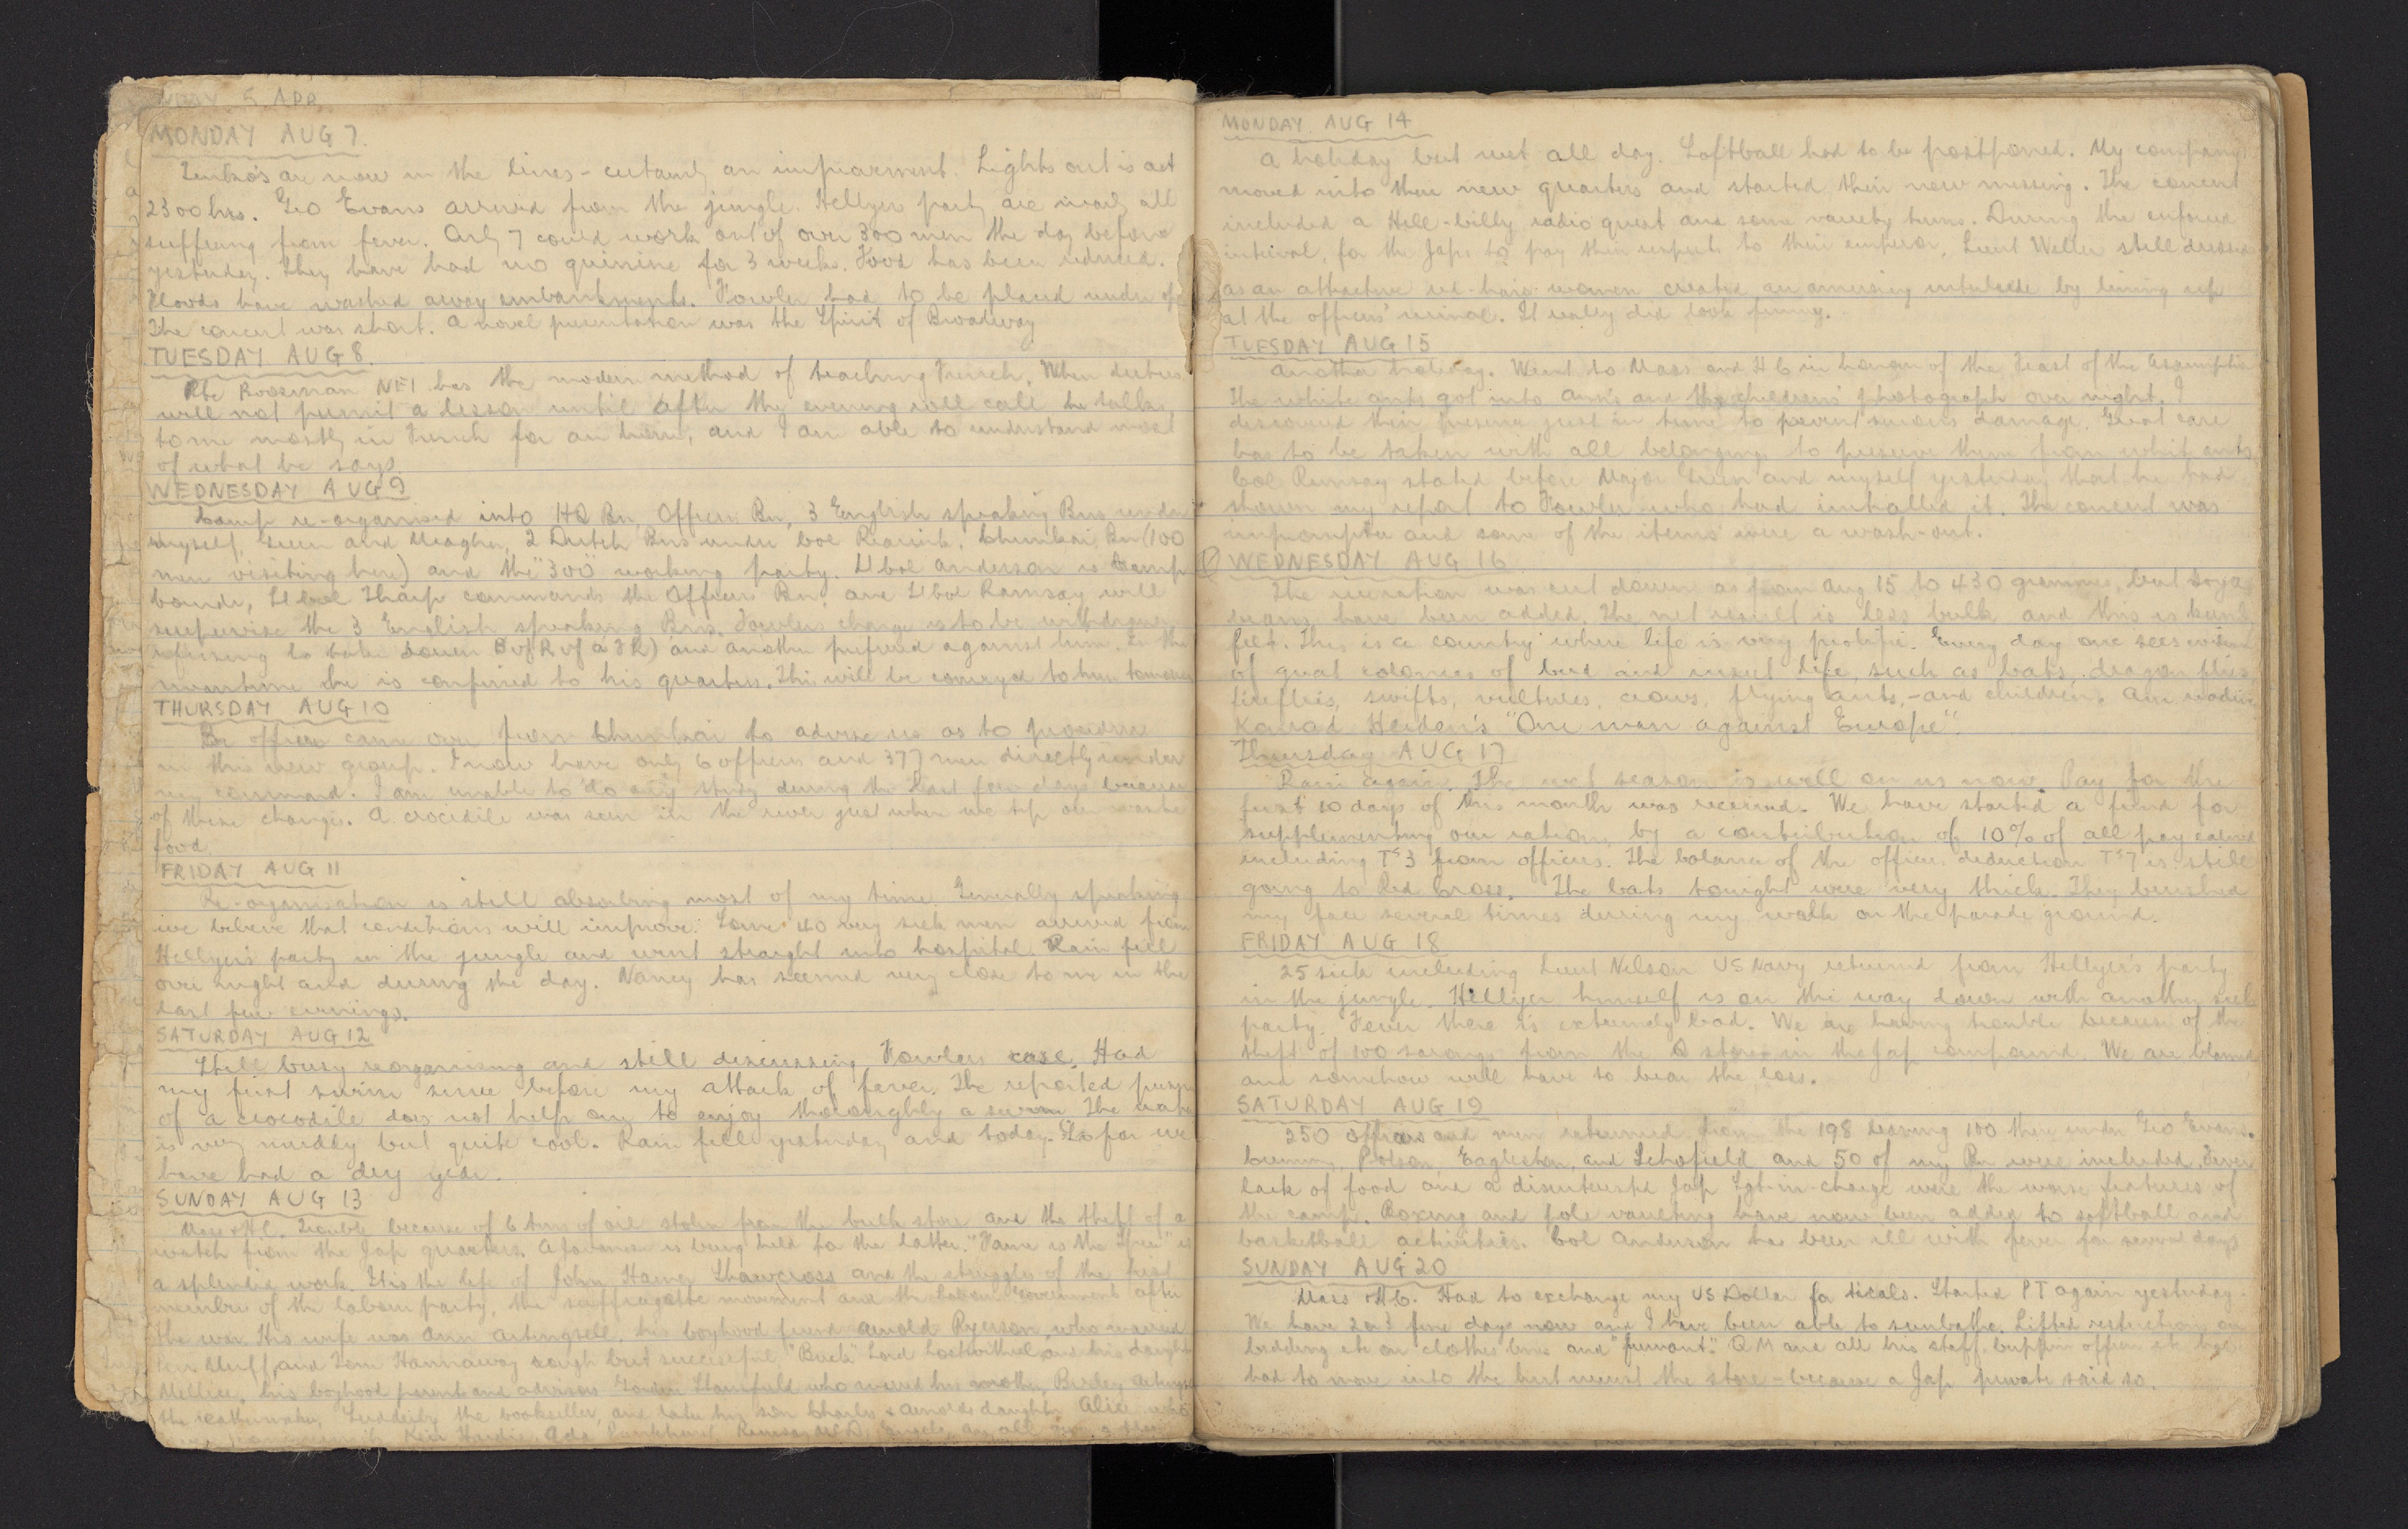 MONDAY AUG 7.
are now in the lines - certainly an improvement. Lights out is at
2300 hrs. Geo Evans arrived from the jungle. Hellyer party are nearly all
suffering from fever. Only 7 could work out of over 300 men the day before
yesterday. They have had no quinine for 3 weeks. Food has been reduced.
Floods have washed away embankments. Fowler had to be placed under
The concert was short. A novel presentation was the Spirit of Broadway
TUESDAY AUG 8.
Pte NEI has the modern method of teaching French. When duties
will not permit a lesson until after the evening roll call he talks
to me mostly in French for an hour, and I am able to understand most
of what he says.
WEDNESDAY AUG 9
Camp re-organised into HQ Bn, Officers Bn, 3 English speaking Bns under
myself, Green and Meagher, 2 Dutch Bns under Col Chunkai Bn (100
men visiting here) and the "300" working party. Lt Col Anderson is Camp
Comdr, Lt Col Tharp commands the Officers Bn, and Lt Col Ramsay will
supervise the 3 English speaking Bns. Fowlers charge is to be withdrawn
refusing to take down and another prefered against him. In the
meantime he is confined to his quarters. This will be conveyed to him tomorrow
THURSDAY AUG 10
officer came over from Chunkai to advise us as to procedure
in this new group. I now have only 6 officers and 377 men directly under
my command. I am unable to do any study during the last few days because
of these changes. A crocodile was seen in the river just where we tip our waste
food
FRIDAY AUG 11
Re-organisation is still absorbing most of my time. Generally speaking
we believe that conditions will improve. Some 40 very sick men arrived from
Hellyer's party in the jungle and went straight into hospital. Rain fell
over night and during the day. Nancy has seemed very close to me in the
last few evenings.
SATURDAY AUG 12
Still busy reorganising and still discussing Fowlers case. Had
my first swim since before my attack of fever. The reported
of a crocodile does not help one to enjoy thoroughly a swim. The water
is very muddy but quite cool. Rain fell yesterday and today. So far we
have had a dry year.
SUNDAY AUG 13
Mass & HC. Trouble because of 6 tins of oil stolen from the bulk store and the theft of a
watch from the Jap quarters. A Javanese is being held for the latter. "Fame is the Spur" is
a splendid work. It is the life of John Hamer Shawcross and the struggles of the first
member of the labour party, the suffragette movement and the Labour Government after
the war. His wife was Ann Artingsell, his boyhood friend Arnold Ryerson, who married
Pen Muff, and Tom Hannaway rough but successful, "Buck" Lord Lostwithiel and his daughter
Mellice, his boyhood parents and advisors Gordon Stansfield who married his mother, Birley Artingsell
the the bookseller, and later his son Charles & Arnolds daughter Alice who
Keir Hardie, Pankhurst, Ramsay McD
MONDAY AUG 14
A holiday but wet all day. Softball had to be postponed. My company
moved into their new quarters and started their new messing. The concert
included a Hill-billy radio quest and some variety turns. During the enforced
interval, for the Japs to pay their respects to their emperor, Lieut Weller still dressed
as an attractive red-hair women created an amusing interlude by lining up
at the officers' urinal. It really did look funny.
TUESDAY AUG 15
Another holiday. Went to Mass and HC in honour of the Feast of the Assumption
The white ants got into Ann's and the childrens' photograph over night. I
discovered their presence just in time to prevent serious damage. Great care
has to be taken with all belongings to preserve them from white ants
Col Ramsay stated before Major Green and myself yesterday that he had
shown my report to Fowler who had initialled it. The concert was
impromptu and some of the items were a wash-out.
WEDNESDAY AUG 16
The rice ration was cut down as from Aug 15 to 430 grammes, but soya
beans have been added. The net result is less bulk and this is being
felt. This is a country where life is very prolific. Every day one sees
of great colonies of bird and insect life, such as bats, dragon flies
fireflies, swifts, vultures, crows, flying ants, - and children. Am reading
Konrad Heiden's "One man against Europe".
Thursday AUG 17
Rain again. The wet season is well on us now. Pay for the
first 10 days of this month was received. We have started a fund for
supplementing our rations by a contribution of 10% of all pay earned
including Ts3 from officers. The balance of the officers deduction Ts7 is still
going to Red Cross. The bats tonight were very thick. They brushed
my face several times during my walk on the parade ground.
FRIDAY AUG 18
25 sick including Lieut Nelson US Navy returned from Hellyer's party
in the jungle. Hellyer himself is on the way down with another sick
party. Fever there is extremely bad. We are having trouble because of the
theft of 100 sarongs from the Q store in the Jap compound. We are blamed
and somehow will have to bear the loss.
SATURDAY AUG 19
250 officers and men returned from the 198 leaving 100 there under Geo Evans.
Eagleston, and Schofield and 50 of my Bn were included. Fever
lack of food and a disinterested Jap Sgt-in-charge were the worse features of
the camp. Boxing and pole vaulting have now been added to softball and
basketball activities. Col Anderson has been ill with fever for several days
SUNDAY AUG 20
Mass & HC. Had to exchange my US Dollar for ticals. Started PT again yesterday.
We have 2 or 3 fine days now and I have been able to sunbathe. Lifted restrictions on
bedding etc on clothes lines and QM and all his staff, officers etc
had to move into the hut nearest the store - because a Jap private said so.